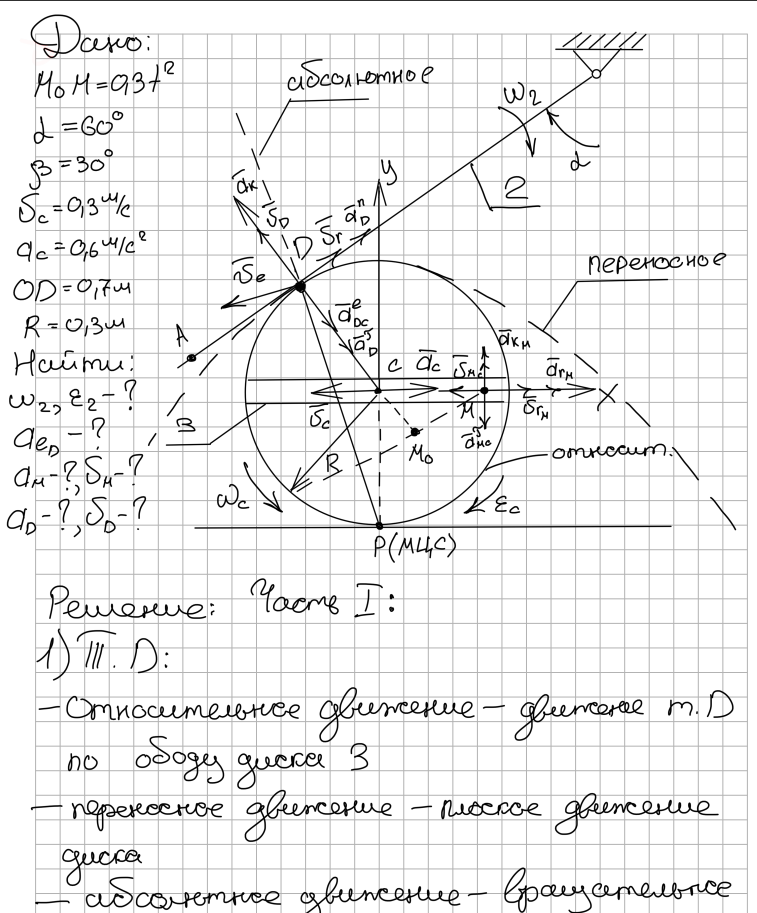 Дано:
M₀M=0,3t²
α=60°
β=30°
υc=0,3 м/с
ac=0,6 м/с²
OD=0,7м
R=0,3м
Найти:
ω₂, ε₂-?
aeD-?
aM-?, υM-?
aD-?, υD-?
абсолютное
ω₂
α
2
y
переносное
āk
ῡD
D
ῡr
āDⁿ
ῡe
A
āDCᵉ
āDᵓ
C
āc
ῡMc
ākM
ārM
X
ῡc
M
ῡrM
āMcᵓ
3
R
M₀
относит.
ωc
εc
P(МЦС)
Решение: Часть I:
1) Т. D:
– Относительное движение – движение т. D
по ободу диска 3
– переносное движение – плоское движение
диска
– абсолютное движение – вращательное